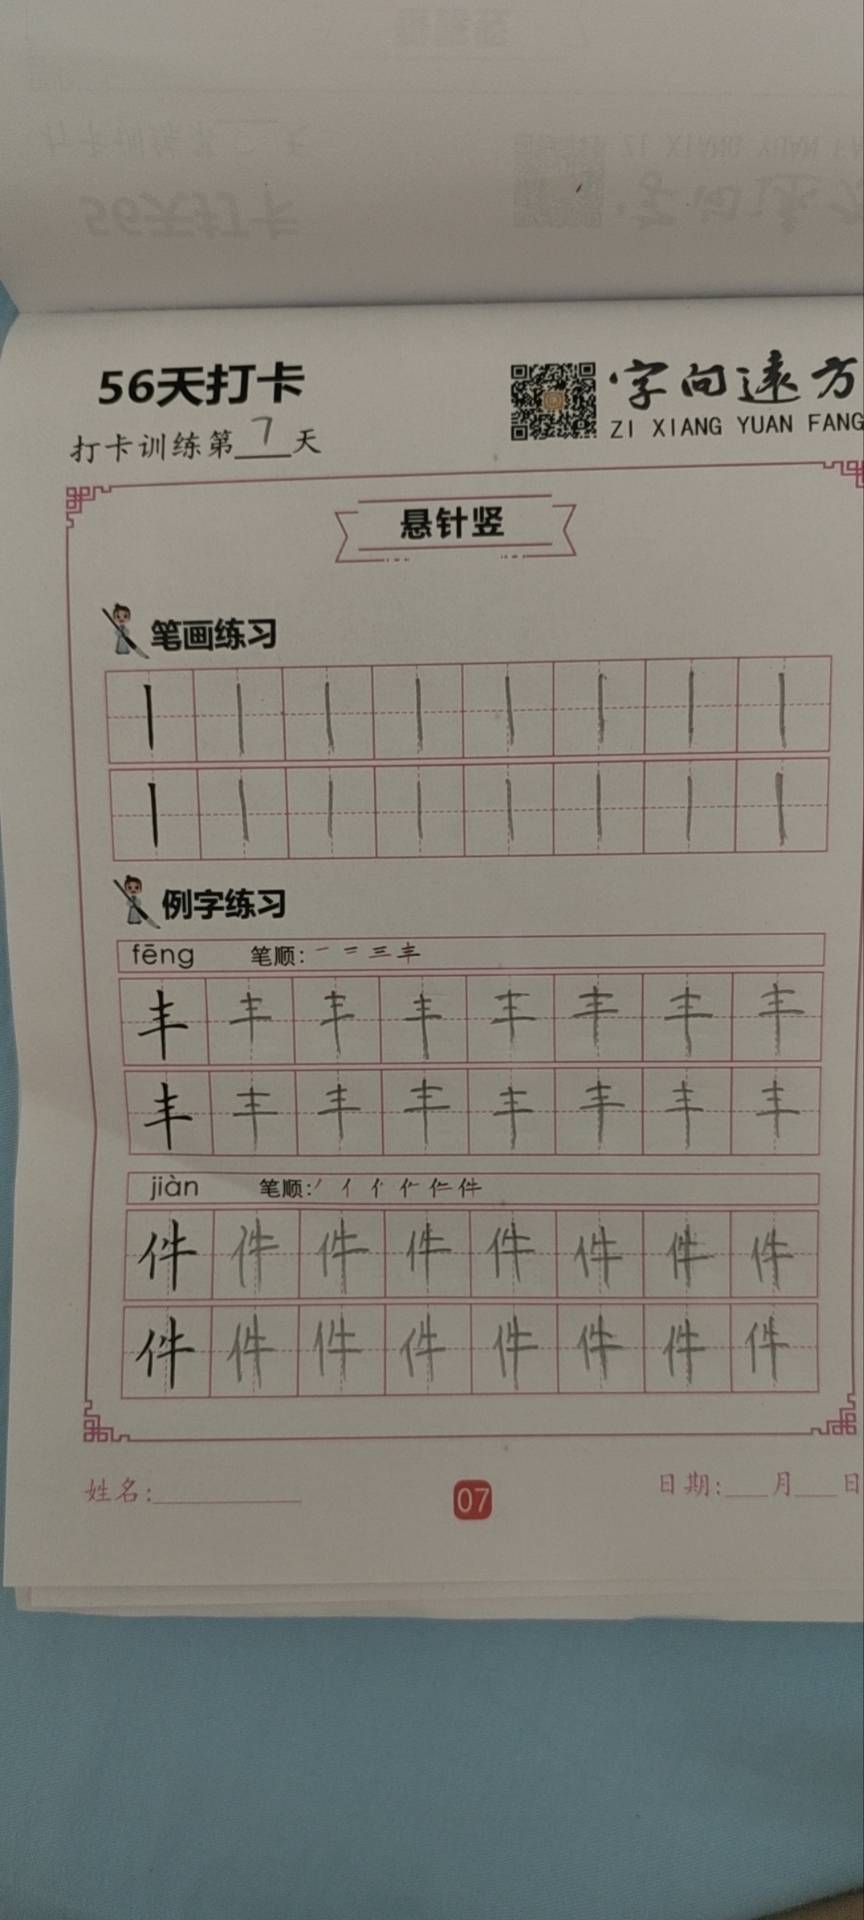 56天打卡
字向远方
ZI XIANG YUAN FANG
打卡训练第7天
悬针竖
笔画练习
丨丨丨丨丨丨丨丨
丨丨丨丨丨丨丨丨
例字练习
fēng 笔顺: 一 二 三 丰
丰丰丰丰丰丰丰丰
丰丰丰丰丰丰丰丰
jiàn 笔顺:
件件件件件件件件
件件件件件件件件
姓名:
07
日期: 月 日